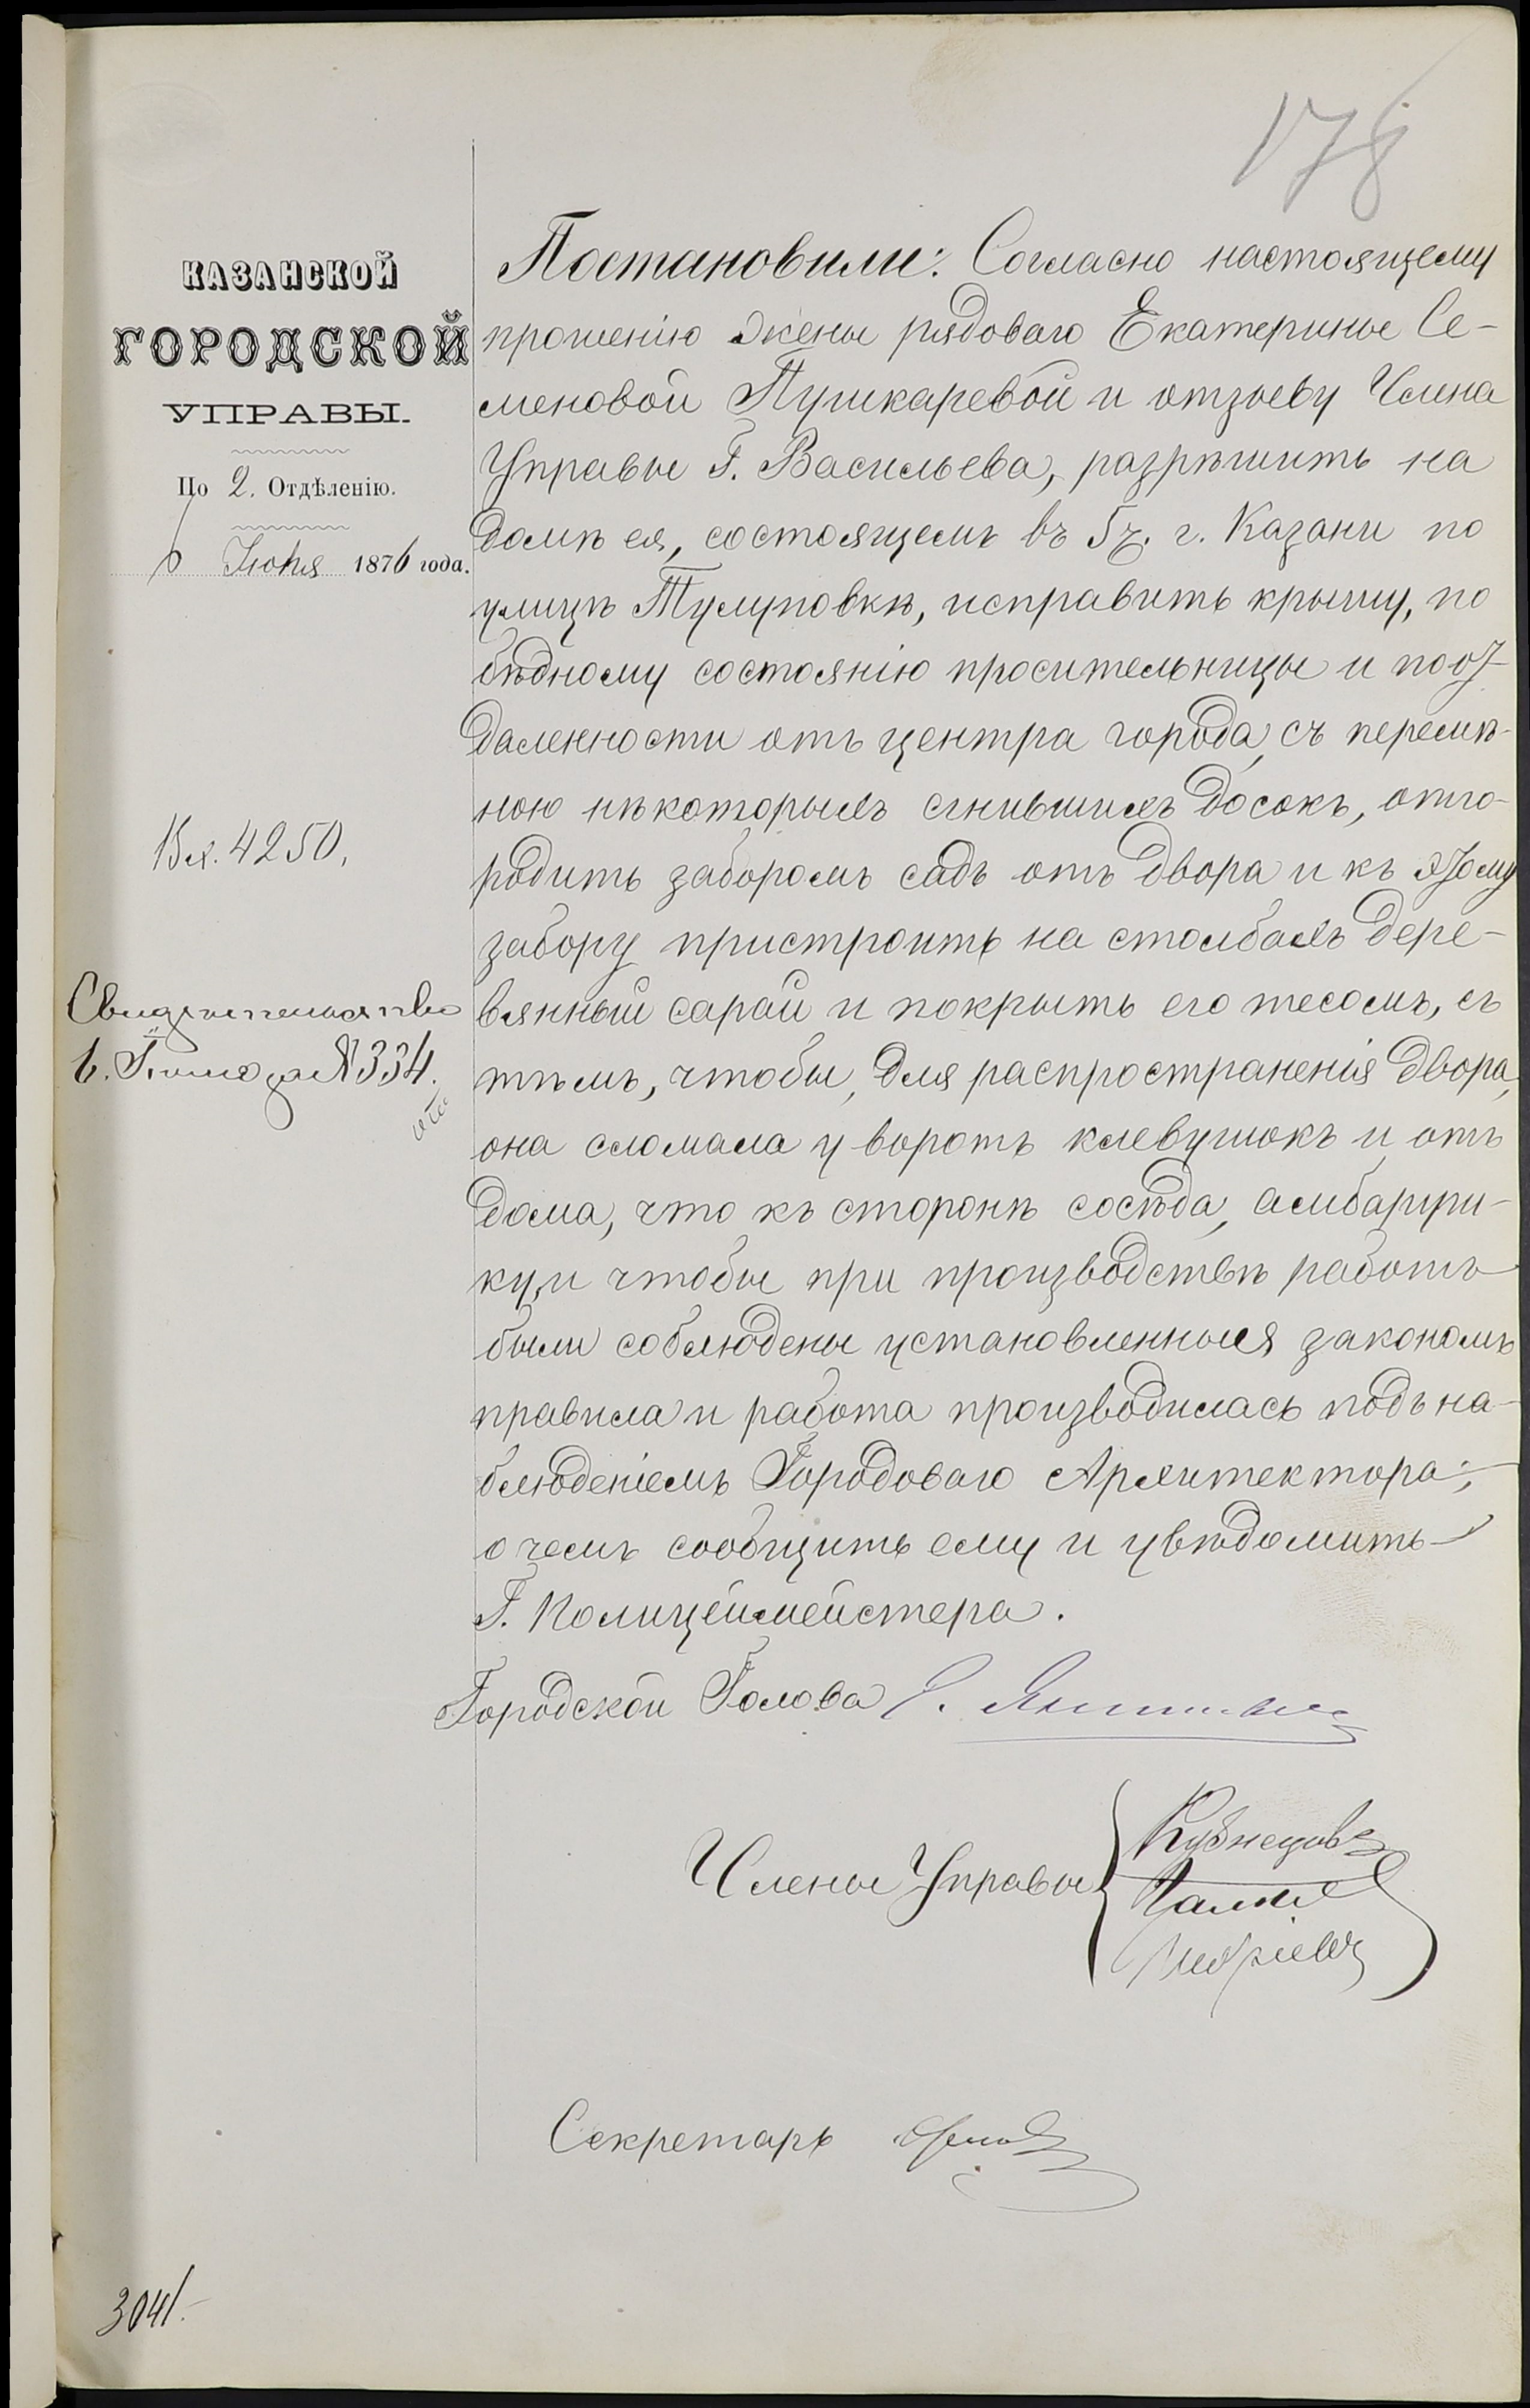 178
КАЗАНСКОЙ
ГОРОДСКОЙ
УПРАВЫ.
По 2. Отдѣленію.
Іюня 1876 года.
Вх. 4250.
Свидѣтельство
№ 334.
Постановили: Согласно настоящему
прошенію жены рядоваго Екатерины Се-
меновой Пушкаревой и отзыву Члена
Управы Г. Васильева, разрѣшить на
домѣ ея, состоящемъ въ 5 ч. г. Казани по
улицѣ Тулуповкѣ, исправить крышу, по
бѣдному состоянію просительницы и по от-
даленности отъ центра города, съ перемѣ-
ною нѣкоторыхъ сгнившихъ досокъ, отго-
родить заборомъ садъ отъ двора и къ этому
забору пристроить на столбахъ дере-
вянный сарай и покрыть его тесомъ, съ
тѣмъ, чтобы, для распространенія двора,
она сломала у воротъ хлевушокъ и отъ
дома, что къ сторонѣ сосѣда, амбаруш-
ку, и чтобы при производствѣ работъ
были соблюдены установленныя закономъ
правила и работа производилась подъ на-
блюденіемъ Городоваго Архитектора;
о чемъ сообщить ему и увѣдомить
Г. Полицеймейстера.
Городской Голова
Члены Управы
Кузнецовъ
Секретарь
3041.